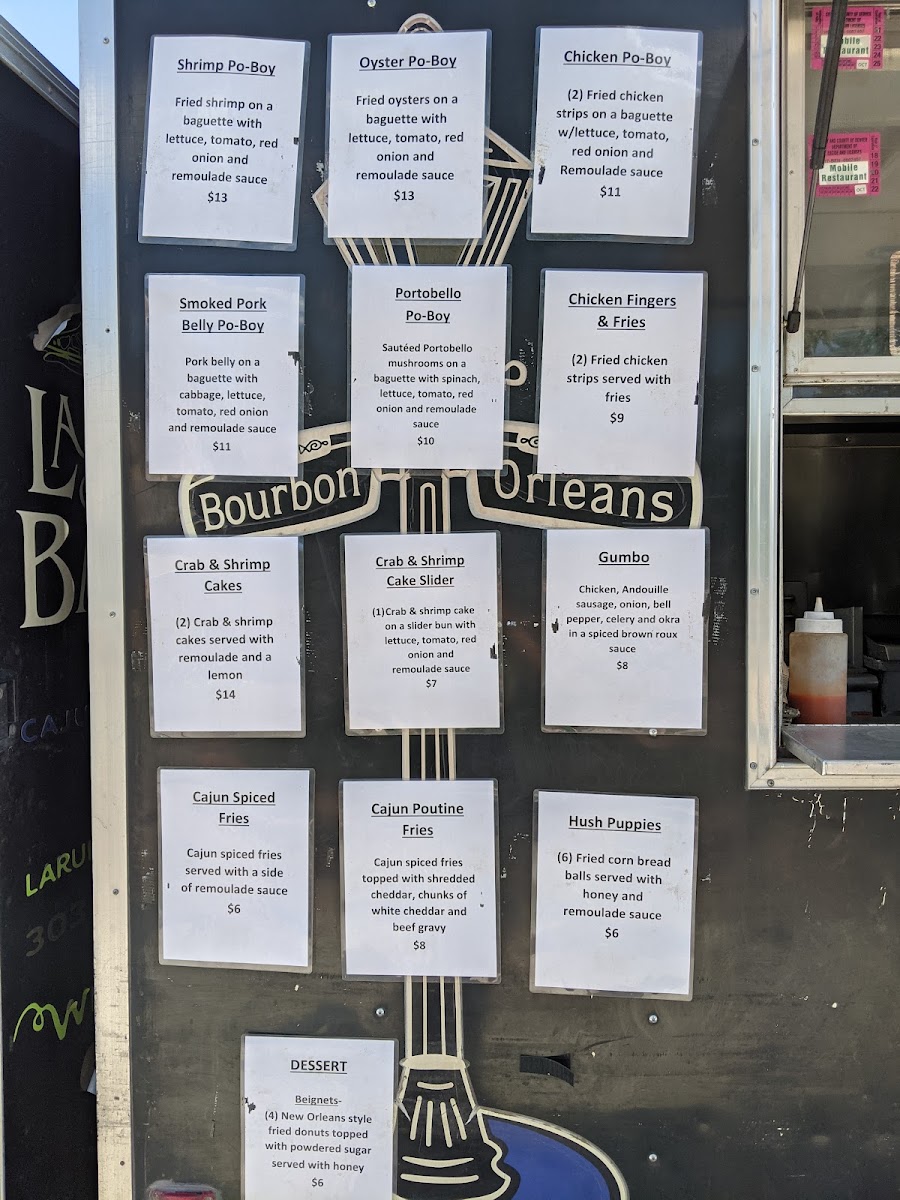 Shrimp Po-Boy
Fried shrimp on a
baguette with
lettuce, tomato, red
onion and
remoulade sauce
$13
Oyster Po-Boy
Fried oysters on a
baguette with
lettuce, tomato, red
onion and
remoulade sauce
$13
Chicken Po-Boy
(2) Fried chicken
strips on a baguette
w/lettuce, tomato,
red onion and
Remoulade sauce
$11
Smoked Pork
Belly Po-Boy
Pork belly on a
baguette with
cabbage, lettuce,
tomato, red onion
and remoulade sauce
$11
Portobello
Po-Boy
Sautéed Portobello
mushrooms on a
baguette with spinach,
lettuce, tomato, red
onion and remoulade
sauce
$10
Chicken Fingers
& Fries
(2) Fried chicken
strips served with
fries
$9
Bourbon
Orleans
Crab & Shrimp
Cakes
(2) Crab & shrimp
cakes served with
remoulade and a
lemon
$14
Crab & Shrimp
Cake Slider
(1)Crab & shrimp cake
on a slider bun with
lettuce, tomato, red
onion and
remoulade sauce
$7
Gumbo
Chicken, Andouille
sausage, onion, bell
pepper, celery and okra
in a spiced brown roux
sauce
$8
Cajun Spiced
Fries
Cajun spiced fries
served with a side
of remoulade sauce
$6
Cajun Poutine
Fries
Cajun spiced fries
topped with shredded
cheddar, chunks of
white cheddar and
beef gravy
$8
Hush Puppies
(6) Fried corn bread
balls served with
honey and
remoulade sauce
$6
DESSERT
Beignets-
(4) New Orleans style
fried donuts topped
with powdered sugar
served with honey
$6
Mobile
Restaurant
OCT
Restaurant
OCT
LA
BA
CAJU
LARU
303